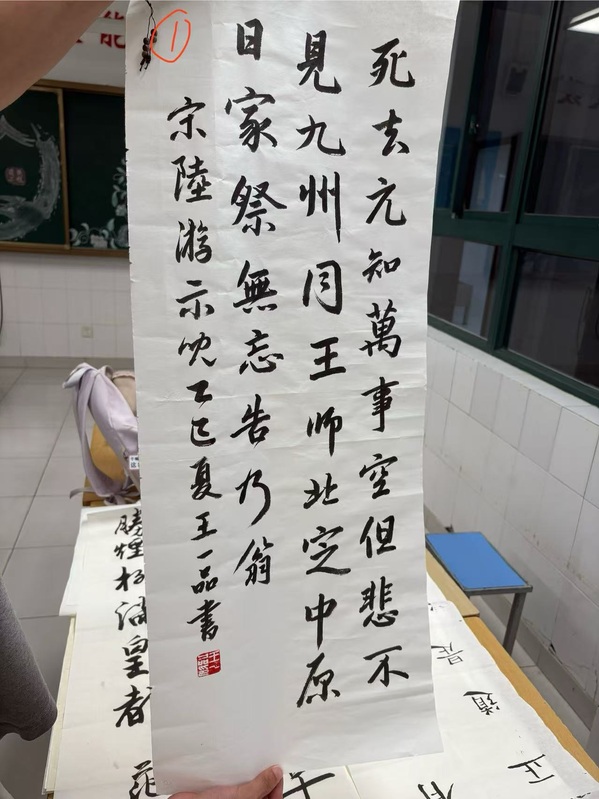 ①
死去元知萬事空但悲不
見九州同王师北定中原
日家祭無忘告乃翁
宋陸游示兒乙巳夏王一品書
勝煙柳滿皇都
能